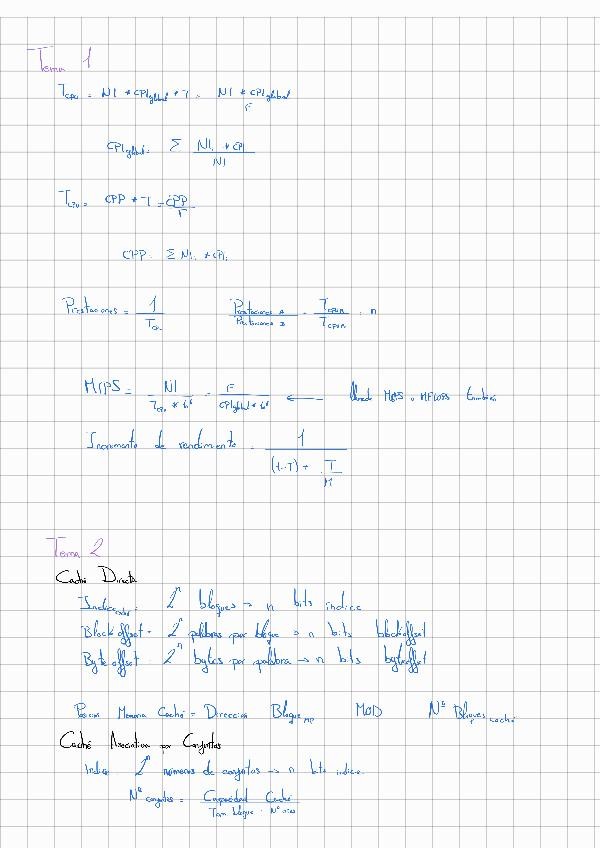 Tema 1
T_CPU = NI * CPI_global * T = NI * CPI_global / F
CPI_global = Σ NI_i * CPI_i / NI
T_CPU = CPP * T = CPP / F
CPP = Σ NI_i * CPI_i
Prestaciones = 1 / T_CPU    Prestaciones A / Prestaciones B = T_CPU B / T_CPU A = n
MIPS = NI / T_CPU * 10^6 = F / CPI_global * 10^6 ← MIPS o MFLOPS también
Incremento de rendimiento = 1 / (1-T) + T/M
Tema 2
Caché Directa
2^n bloques → n bits índice
Block offset = 2^n palabras por bloque → n bits block offset
Byte offset = 2^n bytes por palabra → n bits byte offset
Posición Memoria Caché = Dirección Bloque_MP MOD Nº Bloques caché
Caché Asociativa por Conjuntos
Índice = 2^n números de conjuntos → n bits índice.
Nº conjuntos = Capacidad Caché / Tam bloque · Nº vías